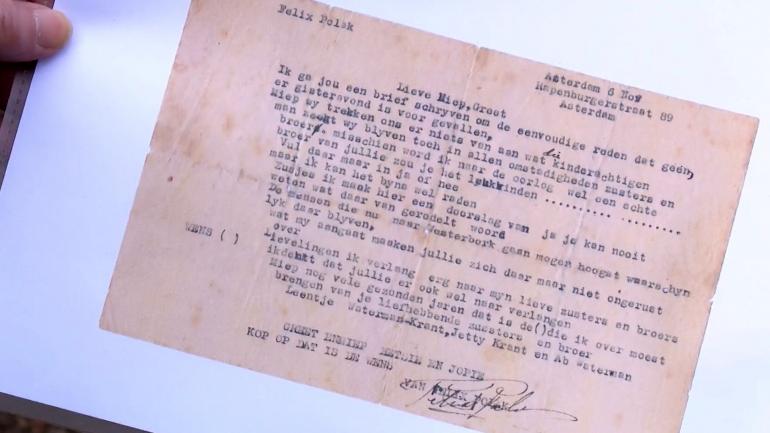 Felix Polak
Amsterdam 6 Nov
Rapenburgerstraat 89
Amsterdam
Lieve Miep, Greet
Ik ga jou een brief schryven om de eenvoudige reden dat geén,
er gisteravond is voor gevallen,
Miep wy trekken ons er niets van aan wat die kinderachtigen
man wy blyven toch in allen omstadigheden zusters en
broers. misschien word ik naar de oorlog wel een echte
broer van jullie zou je het vinden .......... .........
Vul daar maar in ja of nee
maar ik kan het byna wel raden
Zusjes ik maek hier een doorslag van ja je kan nooit
weten wat daar van gerodelt woord
De mensen die nu naar Westerbork gaan mogen hoogst waarschyn
lyk daar blyven,
wat my aangaat masken jullie zich daar maar niet ongerust
over
WENS ( ) Lievelingen ik verlang erg naar myn lieve zusters en broers
ik denkt dat jullie er ook wel naar verlangen
Miep nog vele gezonden jaren dat is de()die ik over moest
brengen van je liefhebbende zussters en broer
Leentje Waterman-Krant, Jetty Krant en Ab Waterman
GROET EN JOPIE
KOP OP DAT IS DE WENS
VAN